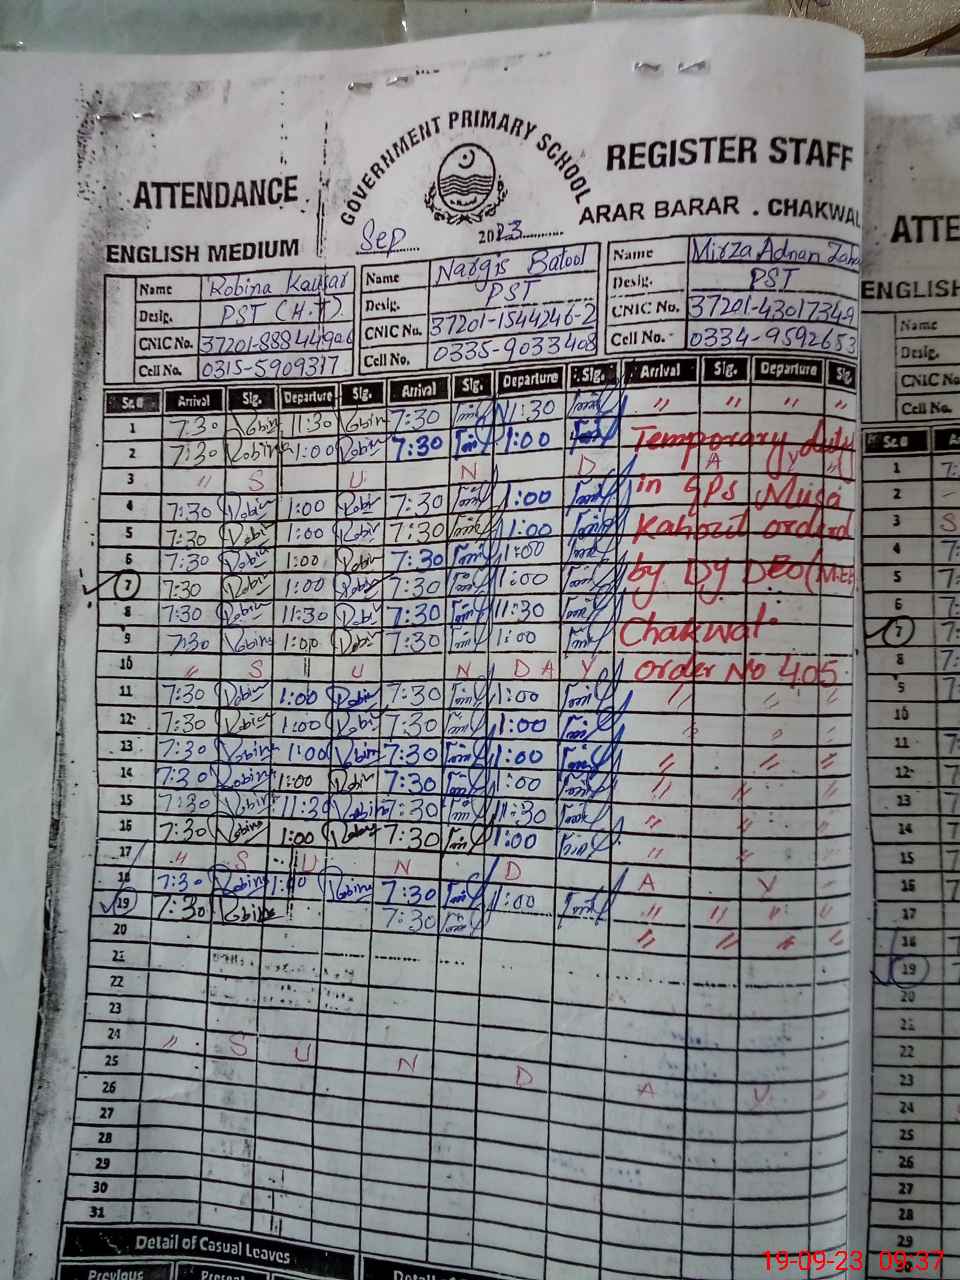 GOVERNMENT PRIMARY SCHOOL
ATTENDANCE REGISTER STAFF
ENGLISH MEDIUM Sep 2023 ARAR BARAR . CHAKWAL
Name Robina Kausar Name Nargis Batool Name Mirza Adnan
Desig. PST (H.T) Desig. PST Desig. PST
CNIC No. CNIC No. 37201-1544246-2 CNIC No. 37201-4301734-9
Cell No. 0315-5909317 Cell No. 0335-9033408 Cell No. 0334-9592653
Sr.# Arrival Sig. Departure Sig. Arrival Sig. Departure Sig. Arrival Sig. Departure Sig.
1 7:30 Robina 11:30 Robina 7:30 11:30 〃 〃 〃 〃
2 7:30 Robina 1:00 Robina 7:30 1:00 Temporary duty
3 〃 S U N D A Y
4 7:30 Robina 1:00 Robi 7:30 1:00 in GPS Musa
5 7:30 Robi 1:00 Robi 7:30 1:00 Kahout orderd
6 7:30 Robin 1:00 Robi 7:30 1:00
7 7:30 Robin 1:00 Robin 7:30 1:00 by Dy DEO (M.EE
8 7:30 Robina 11:30 Robi 7:30 11:30
9 7:30 Robina 1:00 Robi 7:30 1:00 Chakwal
10 〃 S U N D A Y order No 405
11 7:30 Robin 1:00 Robin 7:30 1:00 〃 〃 〃
12 7:30 Robina 1:00 Robin 7:30 1:00 〃 〃 〃
13 7:30 Robina 1:00 Robina 7:30 1:00 〃 〃 〃
14 7:30 Robina 1:00 Robin 7:30 1:00 〃 〃 〃
15 7:30 Robin 11:30 Robina 7:30 11:30 〃 〃 〃
16 7:30 Robina 1:00 Robina 7:30 1:00 〃 〃 〃
17 〃 S U N D A Y
18 7:30 Robina 1:00 Robina 7:30 1:00 〃 〃 〃 〃
19 7:30 Robina 7:30 〃 〃 〃 〃
20
21
22
23
24 〃 S U N D A Y
25
26
27
28
29
30
31
Detail of Casual Leaves
Previous Present
ATTE
ENGLISH
Name
Desig.
CNIC No.
Cell No.
Sr.#
1
2
3 S
4
5
6
7
8
9
10
11
12
13
14
15
16
17
18
19
20
21
22
23
24
25
26
27
28
29
19-09-23 09:37